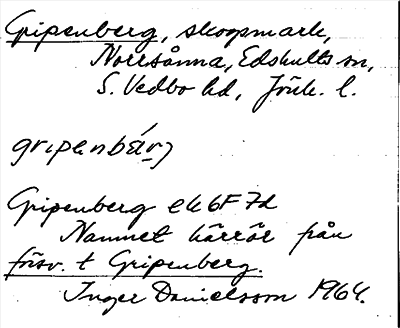 Gripenberg, skogsmark,
Norrsånna, Edshults sn,
S. Vedbo hd, Jönk. l.
gripenbärj
Gripenberg ek 6F 7d
Namnet härrör från
försv. t Gripenberg.
Inger Danielsson 1964.